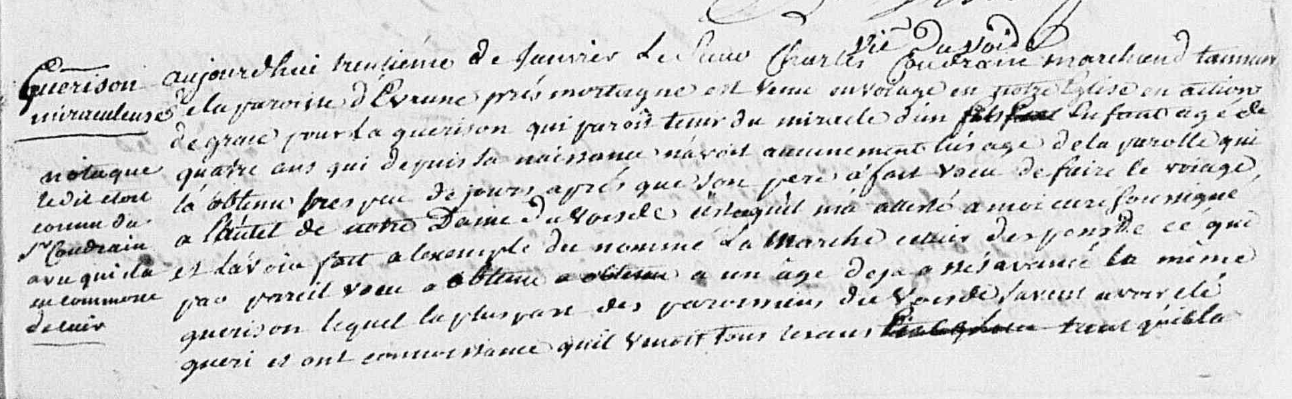 Guerison
miraculeuse
nota que
ledit etoit
connu du
Sr Coudrain
avec qui il a
eu commerce
de cuir
vie Du Voide
aujourdhui trentiéme de Janvier Le Sieur Charles Coudrain marchand tanneur
de la paroisse d'Evrune prés mortagne est venu en voiage en notre Eglise en action
de grace pour La guerison qui paroit tenir du miracle d'un Enfant agé de
quatre ans qui depuis sa naissance n'avoit aucunement l'usage de la parolle qui
là obtenu tres peu de jours aprés que son pere à fait voeu de faire le voiage
a l'autel de notre Dame du Voide ce qu'il m'a attesté a moi curé soussigné
et l'avoir fait a l'exemple du nommé La Marche du ce que
par pareil voeu a obtenu a obtenu a un âge deja assés avancé la même
guerison lequel la plus part des paroissiens du Voide savent avoir eté
gueri et ont connoissance qu'il venoit tous les ans tant qu'il la